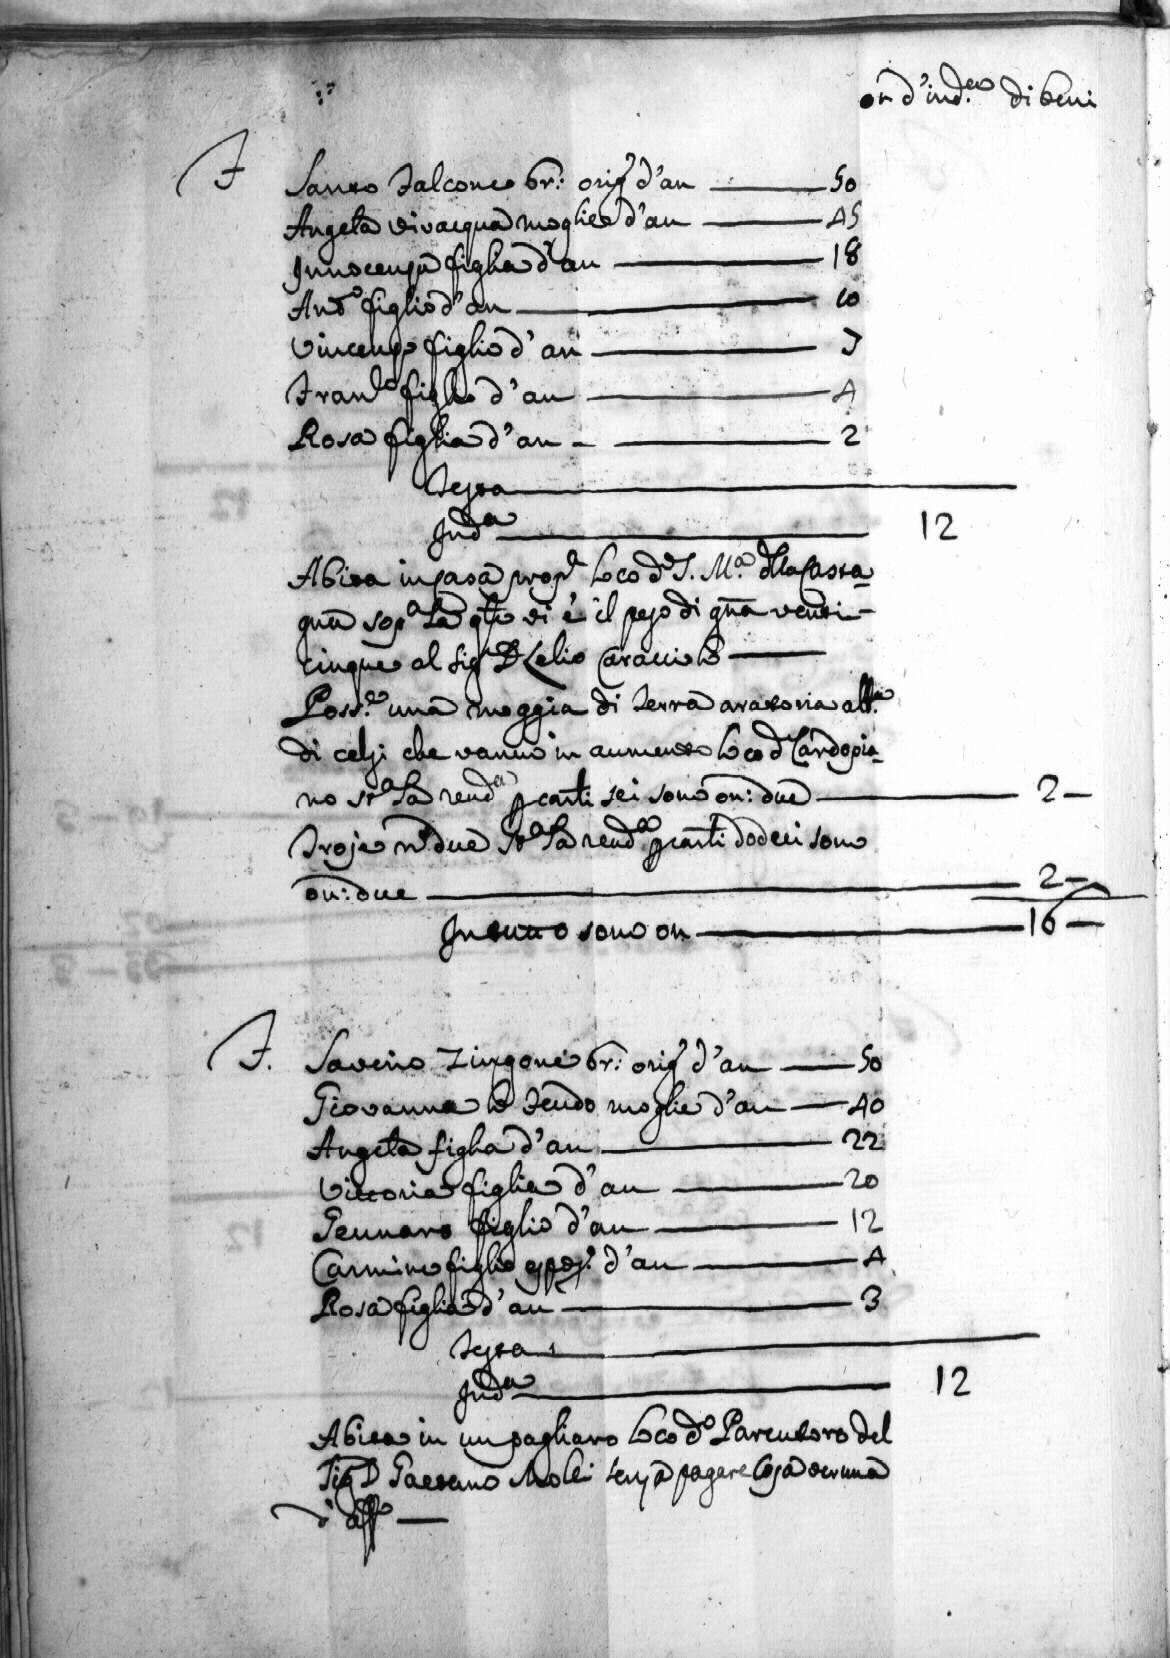 on d'ind.a di beni
F Santo Falcone br: orig.e d'an 50
Angela Vivacqua moglie d'an 45
Innocenza figlia d'an 18
Ant.o figlio d'an 10
Vincenzo figlio d'an 7
Fran.co figlio d'an 4
Rosa figlia d'an 2
Testa
Ind.a 12
Abita in casa prop.a loco d.o S. M.a della Casta=
gna sop.a la q.le vi è il peso di g.na venti=
cinque al Sig.r D. Lelio Caracciolo
Poss.e una moggia di terra aratoria alb.ta
di celzi che vanno in aumento loco d.o Cardopia=
no st.a la rend.a p carli sei sono on: due 2
Troje n.o due st.a la rend.a p carli dodeci sono
on: due 2
In tutto sono on 16
F. Saverio Zingone br: orig.e d'an 50
Giovanna lo Feudo moglie d'an 40
Angela figlia d'an 22
Vittoria figlia d'an 20
Gennaro figlio d'an 12
Carmine figlio espos.o d'an 4
Rosa figlia d'an 3
Testa
Ind.a 12
Abita in un pagliaro loco d.o Parentoro del
Sig.r D. Gaetano Molli senza pagare cosa veruna
d'aff.o